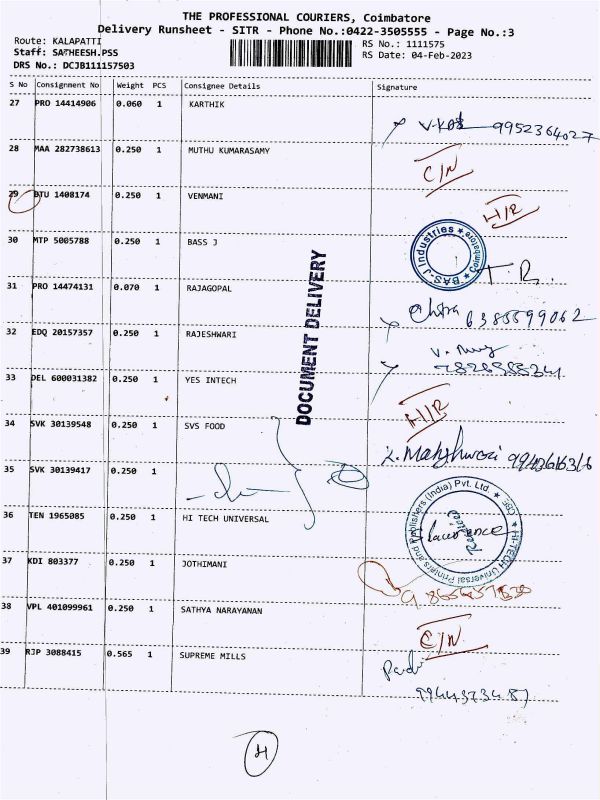 THE PROFESSIONAL COURIERS, Coimbatore
Delivery Runsheet - SITR - Phone No.:0422-3505555 - Page No.:3
Route: KALAPATTI
RS No.: 1111575
Staff: SATHEESH.PSS
RS Date: 04-Feb-2023
DRS No.: DCJB111157503
S No Consignment No Weight PCS Consignee Details Signature
27 PRO 14414906 0.060 1 KARTHIK
9952364027
28 MAA 282738613 0.250 1 MUTHU KUMARASAMY
C/N
29 BTU 1408174 0.250 1 VENMANI
H/R
30 MTP 5005788 0.250 1 BASS J
BAS-J Industries ★ Coimbatore ★
T. R.
31 PRO 14474131 0.070 1 RAJAGOPAL
Chitra 6385599062
32 EDQ 20157357 0.250 1 RAJESHWARI
33 DEL 600031382 0.250 1 YES INTECH
H/R
34 SVK 30139548 0.250 1 SVS FOOD
9943616316
35 SVK 30139417 0.250 1
36 TEN 1965085 0.250 1 HI TECH UNIVERSAL
HI-TECH Universal Printers and Publishers (India) Pvt. Ltd ★ CBE ★
Received
37 KDI 803377 0.250 1 JOTHIMANI
38 VPL 401099961 0.250 1 SATHYA NARAYANAN
C/N
39 RJP 3088415 0.565 1 SUPREME MILLS
DOCUMENT DELIVERY